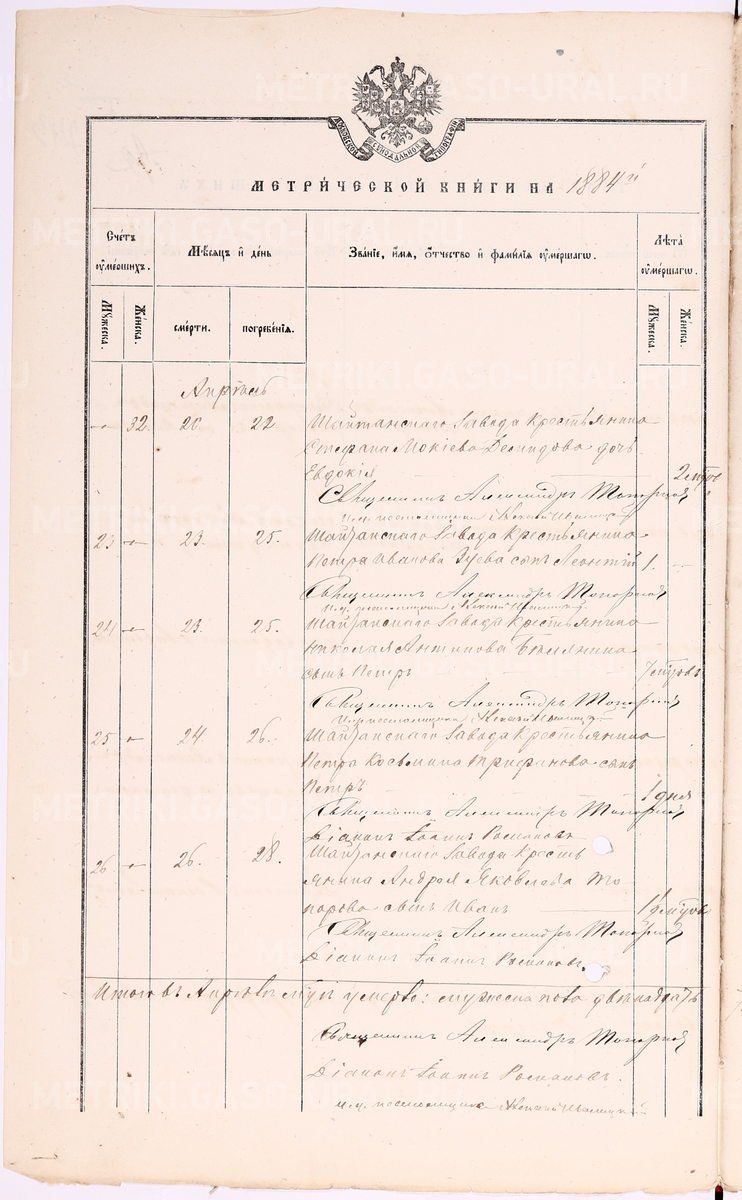 МОСКОВСКОЙ СѴНОДАЛЬНОЙ ТИПОГРАФІИ
МЕТРИ́ЧЕСКОЙ КНИ́ГИ НА 1884й
Сче́тъ ᲂу҆ме́ршихъ.
Мѣ́сяцъ и҆ де́нь
Зва́нїе, и҆́мя, ѻ҆́тчество и҆ фамі́лїя ᲂу҆ме́ршагѡ.
Лѣ́та ᲂу҆ме́ршагѡ.
Мꙋ́жеска.
Же́нска.
сме́рти.
погребе́нїя.
Мꙋ́жеска.
Же́нска.
Апрѣль
32 20 22 Шайтанскаго завода крестьянина
Стефана Мокіева Демидова дочь
Евдокія
Священникъ Александръ Топоркой
23 23. 25. Шайтанскаго завода крестьянина
Петра Иванова Зуева сынъ Леонтій 1.
Священникъ Александръ Топоркой
24 23. 25. Шайтанскаго завода крестьянина
Николая Антипова
сынъ Петръ
Священникъ Александръ Топоркой
25 24 26. Шайтанскаго завода крестьянина
Петра Козьмина Трифанова сынъ
Петръ 1 дня
Священникъ Александръ Топоркой
Діаконъ Іоаннъ Романовъ
26 26. 28. Шайтанскаго завода кресть
янина Андрея Яковлева То
порова сынъ Иванъ
Священникъ Александръ Топоркой
Діаконъ Іоаннъ Романовъ.
Итого въ Апрѣлѣ умерло: мужеска пола
Священникъ Александръ Топоркой
Діаконъ Іоаннъ Романовъ.
METRIKI.GASO-URAL.RU